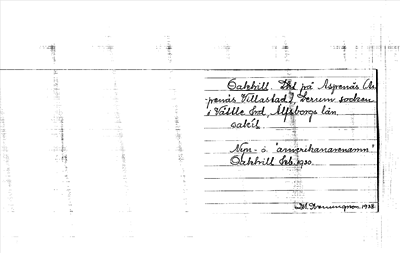 Oakhill. Lht på Aspenäs (As-
penäs Villastad), Lerum socken
i Vättle hd, Älfsborgs län.
oakíl.
Nyn- o. "amerikanarenamn"
Oakhill feb. 1920.
1928